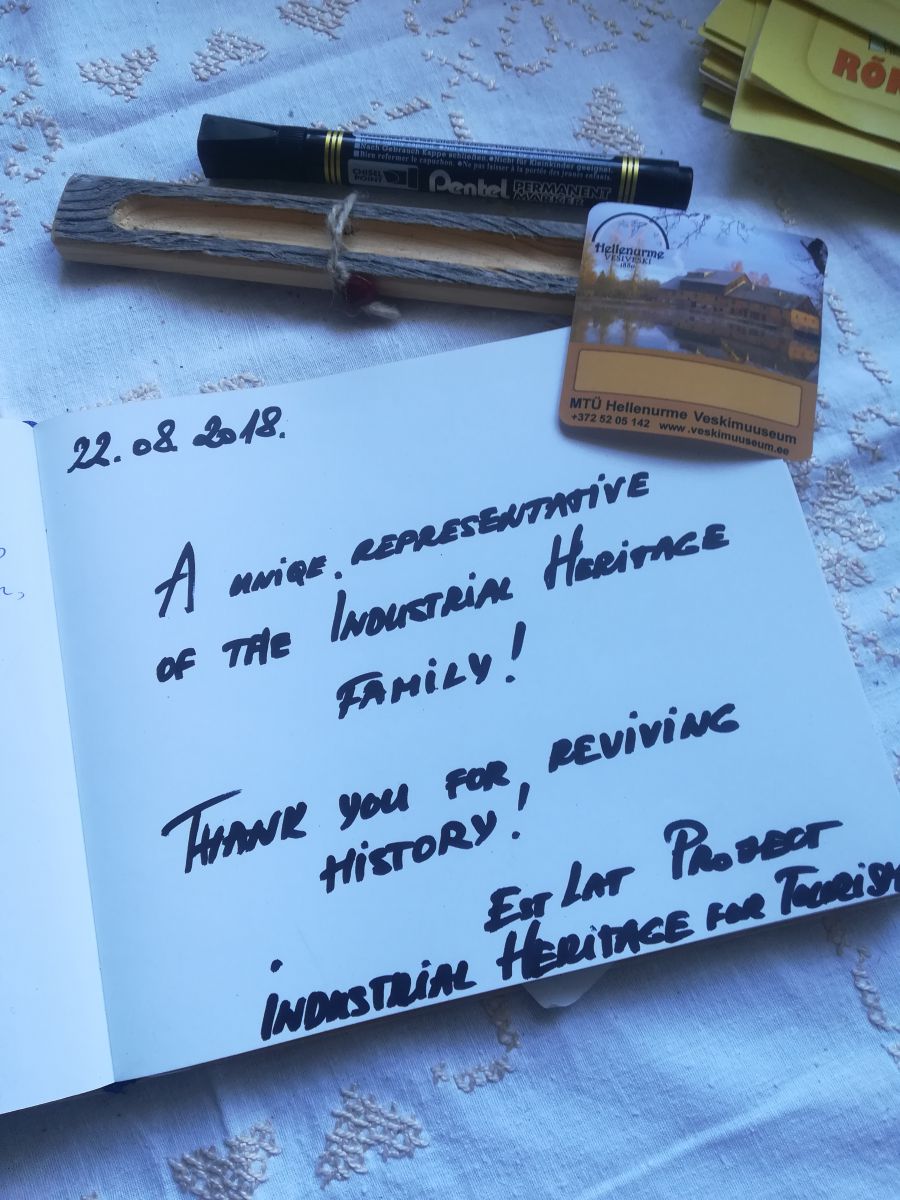 RÕ
Nach Gebrauch Kappe schließen. Nicht für Kleinkinder geeignet.
Bien refermer le capuchon. Ne pas laisser à la portée des jeunes enfants.
CHISEL POINT
Pentel PERMANENT MARKER
Hellenurme
VESIVESKI
MTÜ Hellenurme Veskimuuseum
+372 52 05 142 www.veskimuuseum.ee
22.08.2018.
A UNIQE REPRESENTATIVE
OF THE INDUSTRIAL HERITAGE
FAMILY!
THANK YOU FOR REVIVING
HISTORY!
EST LAT PROJECT
INDUSTRIAL HERITAGE FOR TOURISM